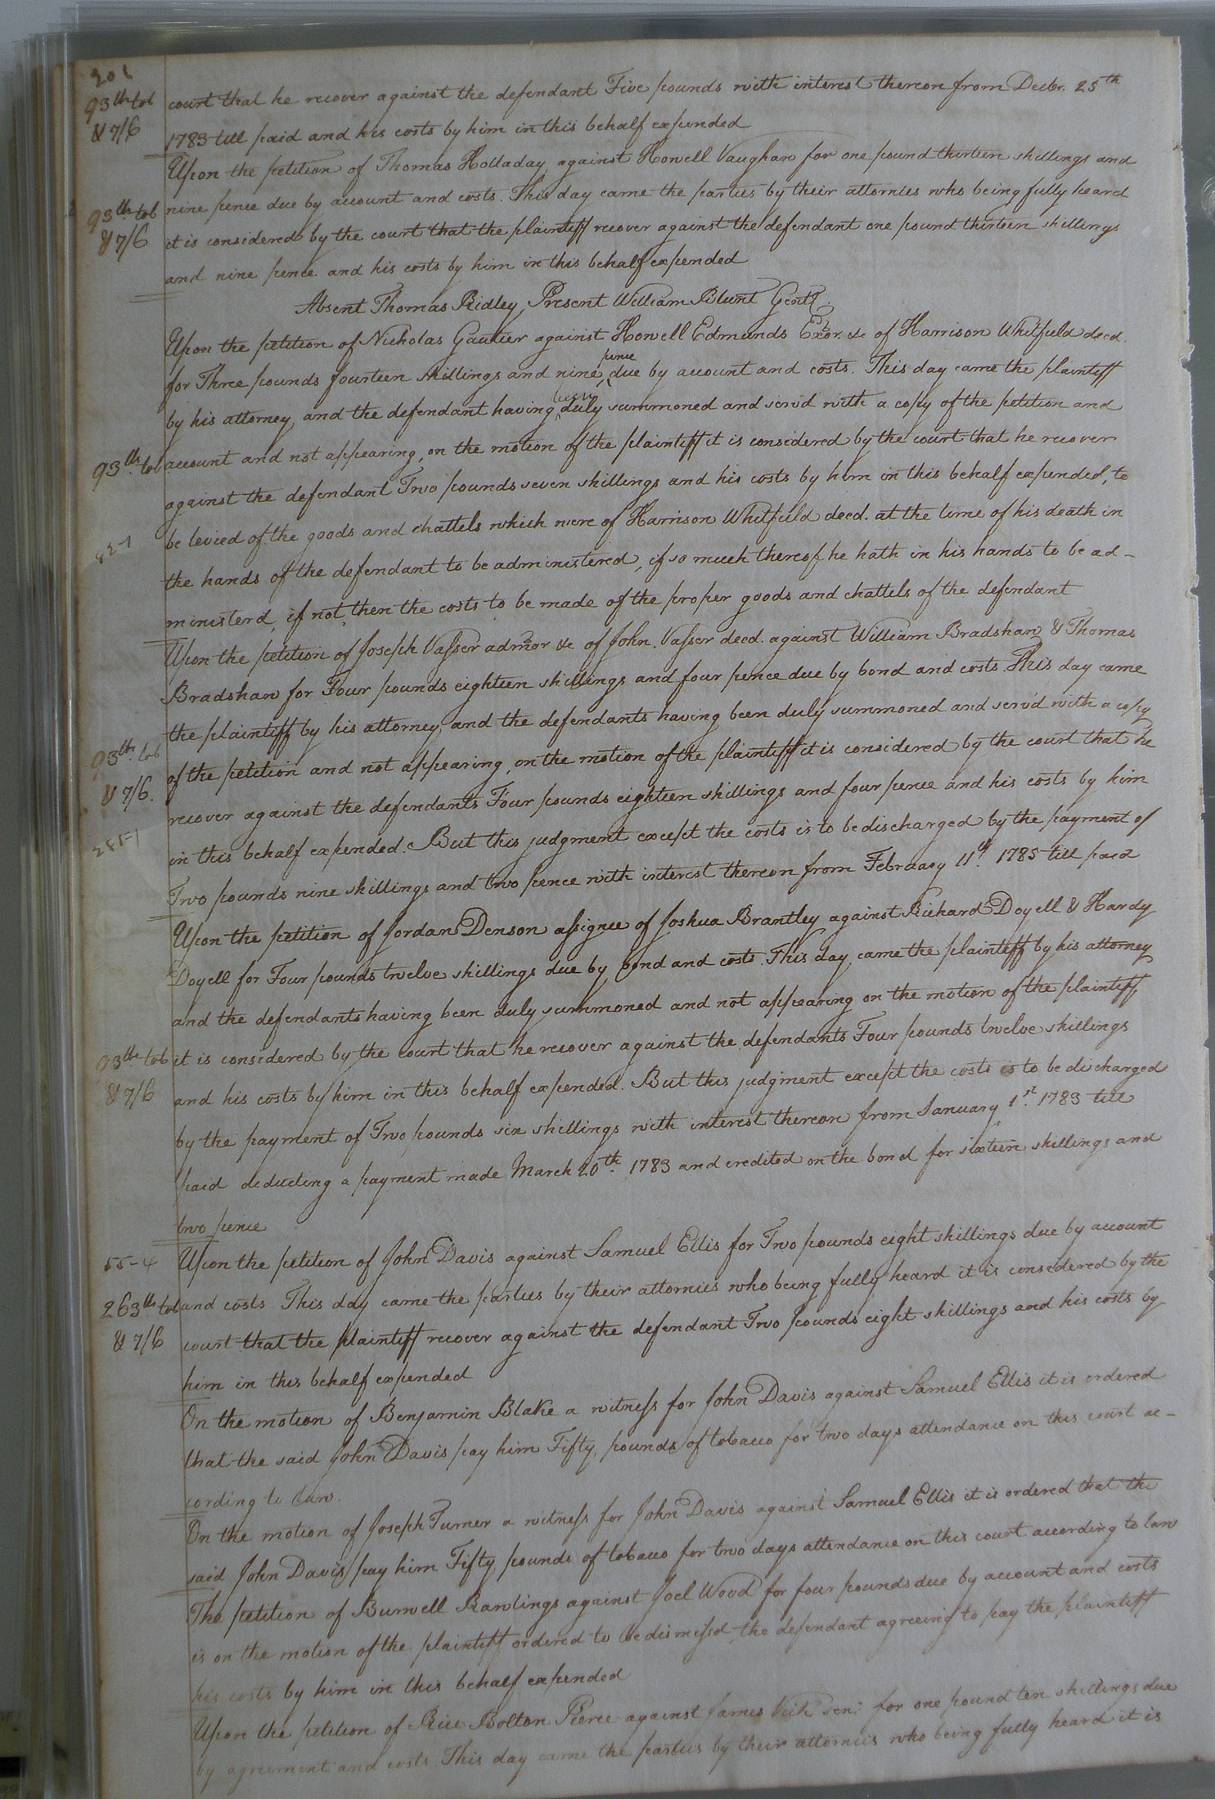 201
93 lb tob court that he recover against the defendant Five pounds with interest thereon from Decbr. 25th
& 7/6 1783 till paid and his costs by him in this behalf expended
Upon the petition of Thomas Holladay against Howell Vaughan for one pound thirteen shillings and
93 lb tob nine pence due by account and costs. This day came the parties by their attornies who being fully heard
& 7/6 it is considered by the court that the plaintiff recover against the defendant one pound thirteen shillings
and nine pence and his costs by him in this behalf expended
Absent Thomas Ridley, Present William Blunt Gentl.
Upon the petition of Nicholas Gautier against Howell Edmunds Exor. &c of Harrison Whitfield decd.
for Three pounds fourteen shillings and nine pence due by account and costs. This day came the plaintiff
by his attorney, and the defendant having been duly summoned and serv'd with a copy of the petition and
93 lb tob account and not appearing, on the motion of the plaintiff it is considered by the court that he recover
against the defendant Two pounds seven shillings and his costs by him in this behalf expended, to
be levied of the goods and chattels which were of Harrison Whitfield decd. at the time of his death in
the hands of the defendant to be administered, if so much thereof he hath in his hands to be ad-
ministerd, if not, then the costs to be made of the proper goods and chattels of the defendant
Upon the petition of Joseph Vasser admor &c of John Vasser decd. against William Bradshaw & Thomas
Bradshaw for Four pounds eighteen shillings and four pence due by bond and costs. This day came
the plaintiff by his attorney, and the defendants having been duly summoned and serv'd with a copy
93 lb. tob of the petition and not appearing, on the motion of the plaintiff it is considered by the court that he
& 7/6. recover against the defendants Four pounds eighteen shillings and four pence and his costs by him
in this behalf expended. But this judgment except the costs is to be discharged by the payment of
Two pounds nine shillings and two pence with interest thereon from February 11th 1785 till paid
Upon the petition of Jordan Denson assignee of Joshua Brantley against Richard Doyell & Hardy
Doyell for Four pounds twelve shillings due by bond and costs. This day came the plaintiff by his attorney
and the defendants having been duly summoned and not appearing on the motion of the plaintiff
93 lb tob it is considered by the court that he recover against the defendants Four pounds twelve shillings
& 7/6 and his costs by him in this behalf expended. But this judgment except the costs is to be discharged
by the payment of Two pounds six shillings with interest thereon from January 1st. 1783 till
paid deducting a payment made March 20th. 1783 and credited on the bond for sixteen shillings and
two pence
55-4 Upon the petition of John Davis against Samuel Ellis for Two pounds eight shillings due by account
263 lb tob and costs. This day came the parties by their attornies who being fully heard it is considered by the
& 7/6 court that the plaintiff recover against the defendant Two pounds eight shillings and his costs by
him in this behalf expended
On the motion of Benjamin Blake a witness for John Davis against Samuel Ellis it is ordered
that the said John Davis pay him Fifty pounds of tobacco for two days attendance on this court ac-
cording to law.
On the motion of Joseph Turner a witness for John Davis against Samuel Ellis it is ordered that the
said John Davis pay him Fifty pounds of tobacco for two days attendance on this court according to law
The petition of Burwell Rawlings against Joel Wood for four pounds due by account and costs
is on the motion of the plaintiff ordered to be dismissd, the defendant agreeing to pay the plaintiff
his costs by him in this behalf expended
Upon the petition of Rice Bolton Pierce against James Vick senr. for one pound ten shillings due
by agreement and costs. This day came the parties by their attornies who being fully heard it is